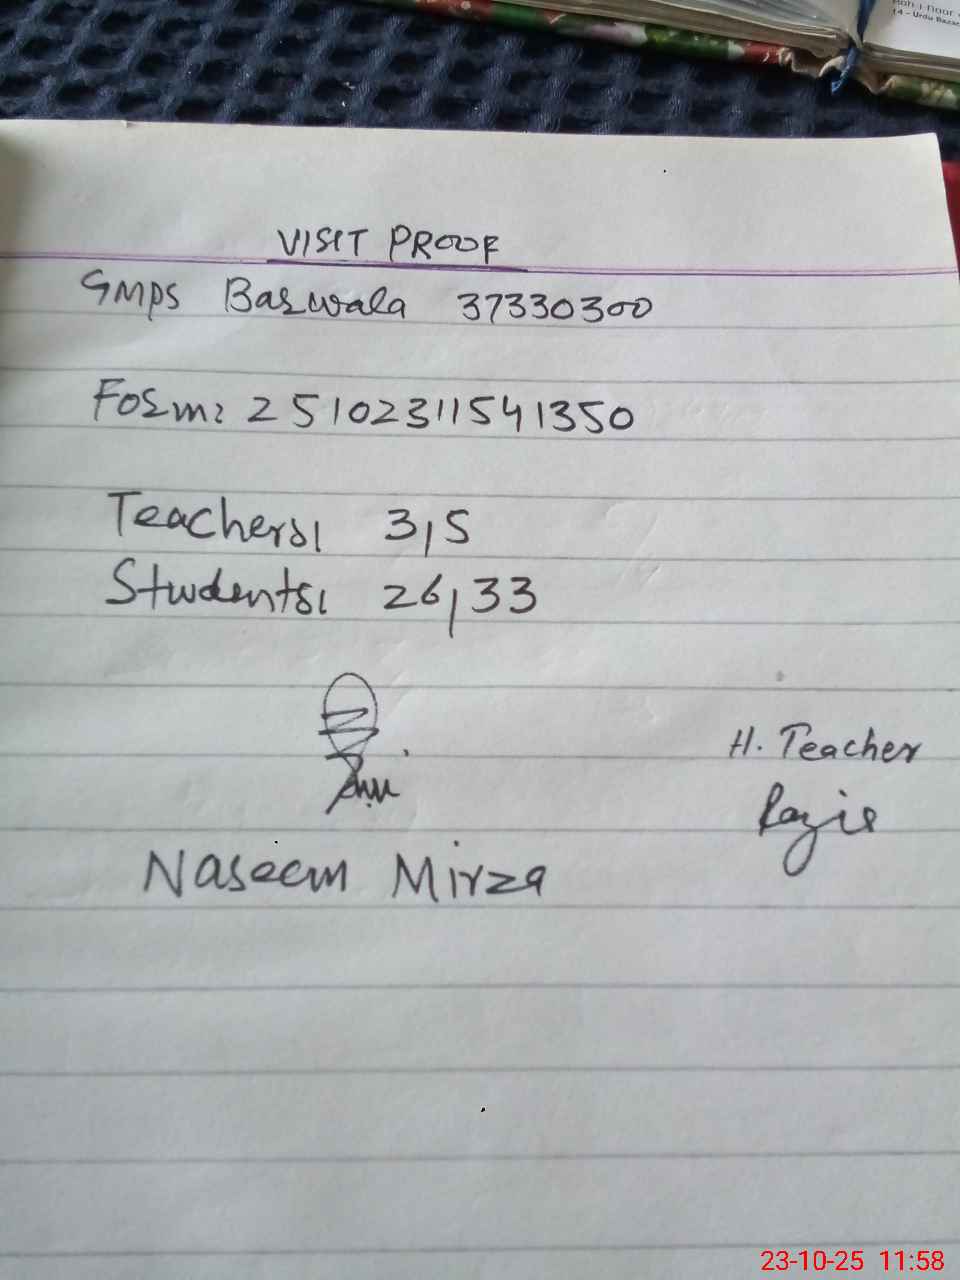 14 - Urdu Bazar
VISIT PROOF
GMPS Barwala 37330300
Form: 25102311541350
Teachers: 3, 5
Students: 26, 33
H. Teacher
Razia
Naseem Mirza
23-10-25 11:58